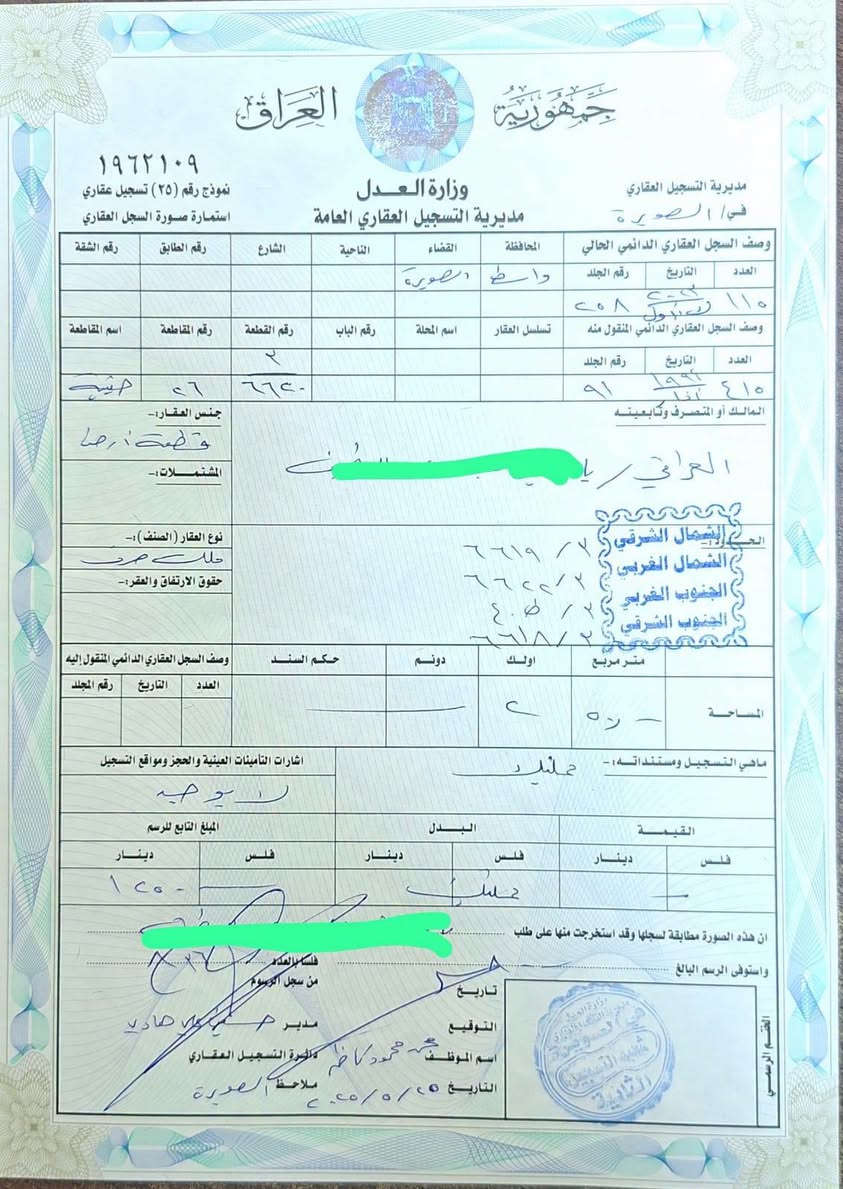 جمهورية العراق
وزارة العدل
مديرية التسجيل العقاري العامة
مديرية التسجيل العقاري
في/ الصويرة
١٩٦٢١٠٩
نموذج رقم (٢٥) تسجيل عقاري
استمارة صورة السجل العقاري
وصف السجل العقاري الدائمي الحالي المحافظة القضاء الناحية الشارع رقم الطابق رقم الشقة
العدد التاريخ رقم الجلد واسط الصويرة
١١٥ ٢٠٠٣ ٢٥٨
وصف السجل العقاري الدائمي المنقول منه تسلسل العقار اسم المحلة رقم الباب رقم القطعة رقم المقاطعة اسم المقاطعة
العدد التاريخ رقم الجلد ٣
٤١٥ ٩١ ٦٦٢٠ ٢٦
المالك أو المتصرف وتابعيته جنس العقار:-
العراقي / قطعة ارض
المشتملات:-
الحدود:
الشمال الشرقي ٣/ ٦٦١٩
الشمال الغربي ٣/ ٦٦٢٢
الجنوب الغربي ٣/ ط.٤
الجنوب الشرقي ٣/ ٦٦١٨
نوع العقار (الصنف):-
ملك صرف
حقوق الارتفاق والعقر:-
متر مربع اولك دونم حكم السند وصف السجل العقاري الدائمي المنقول إليه
العدد التاريخ رقم المجلد
المساحة ٢
ماهي التسجيل ومستنداته:- تمليك
اشارات التأمينات العينية والحجز ومواقع التسجيل
لا يوجد
القيمة البدل المبلغ التابع للرسم
فلس دينار فلس دينار فلس دينار
تمليك ١٢٥٠
ان هذه الصورة مطابقة لسجلها وقد استخرجت منها على طلب
واستوفى الرسم البالغ فلسا بالعدد
تاريخ من سجل الرسوم
التوقيع مدير
اسم الموظف محمود كاظم دائرة التسجيل العقاري
التاريخ ٢٠٢٥/٥/٢٥ ملاحظ الصويرة
الختم الرسمي